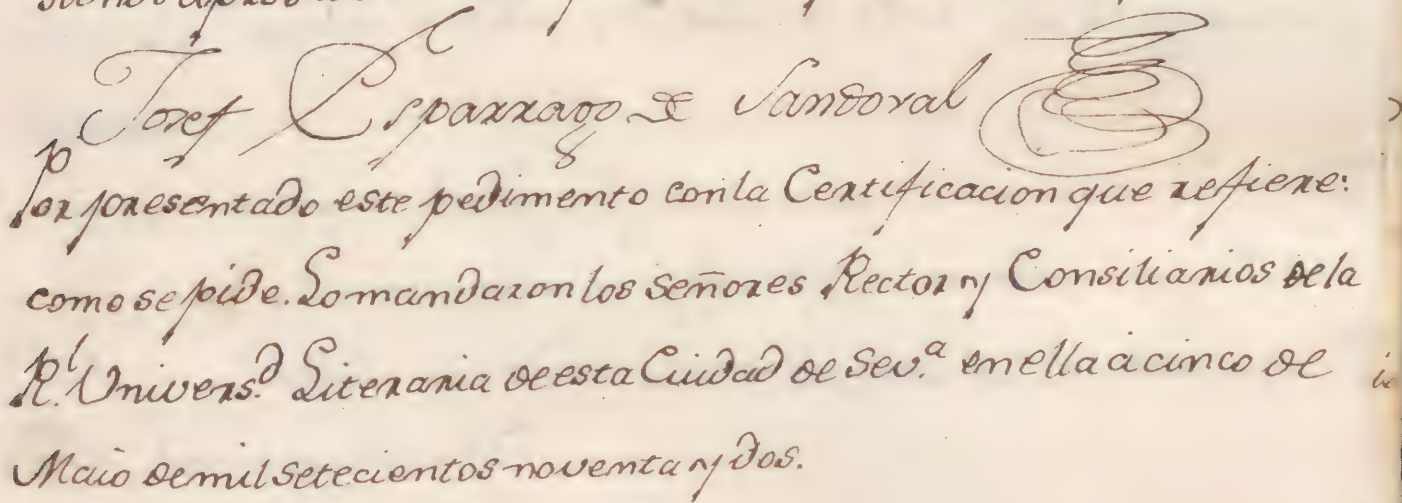 Josef Esparrago de Sandoval
Por presentado este pedimento con la Certificacion que refiere:
como se pide. Lo mandaron los Señores Rector y Consiliarios de la
Rl. Univers.d Literaria de esta Ciudad de Sev.a en ella à cinco de
Maio de mil setecientos noventa y dos.